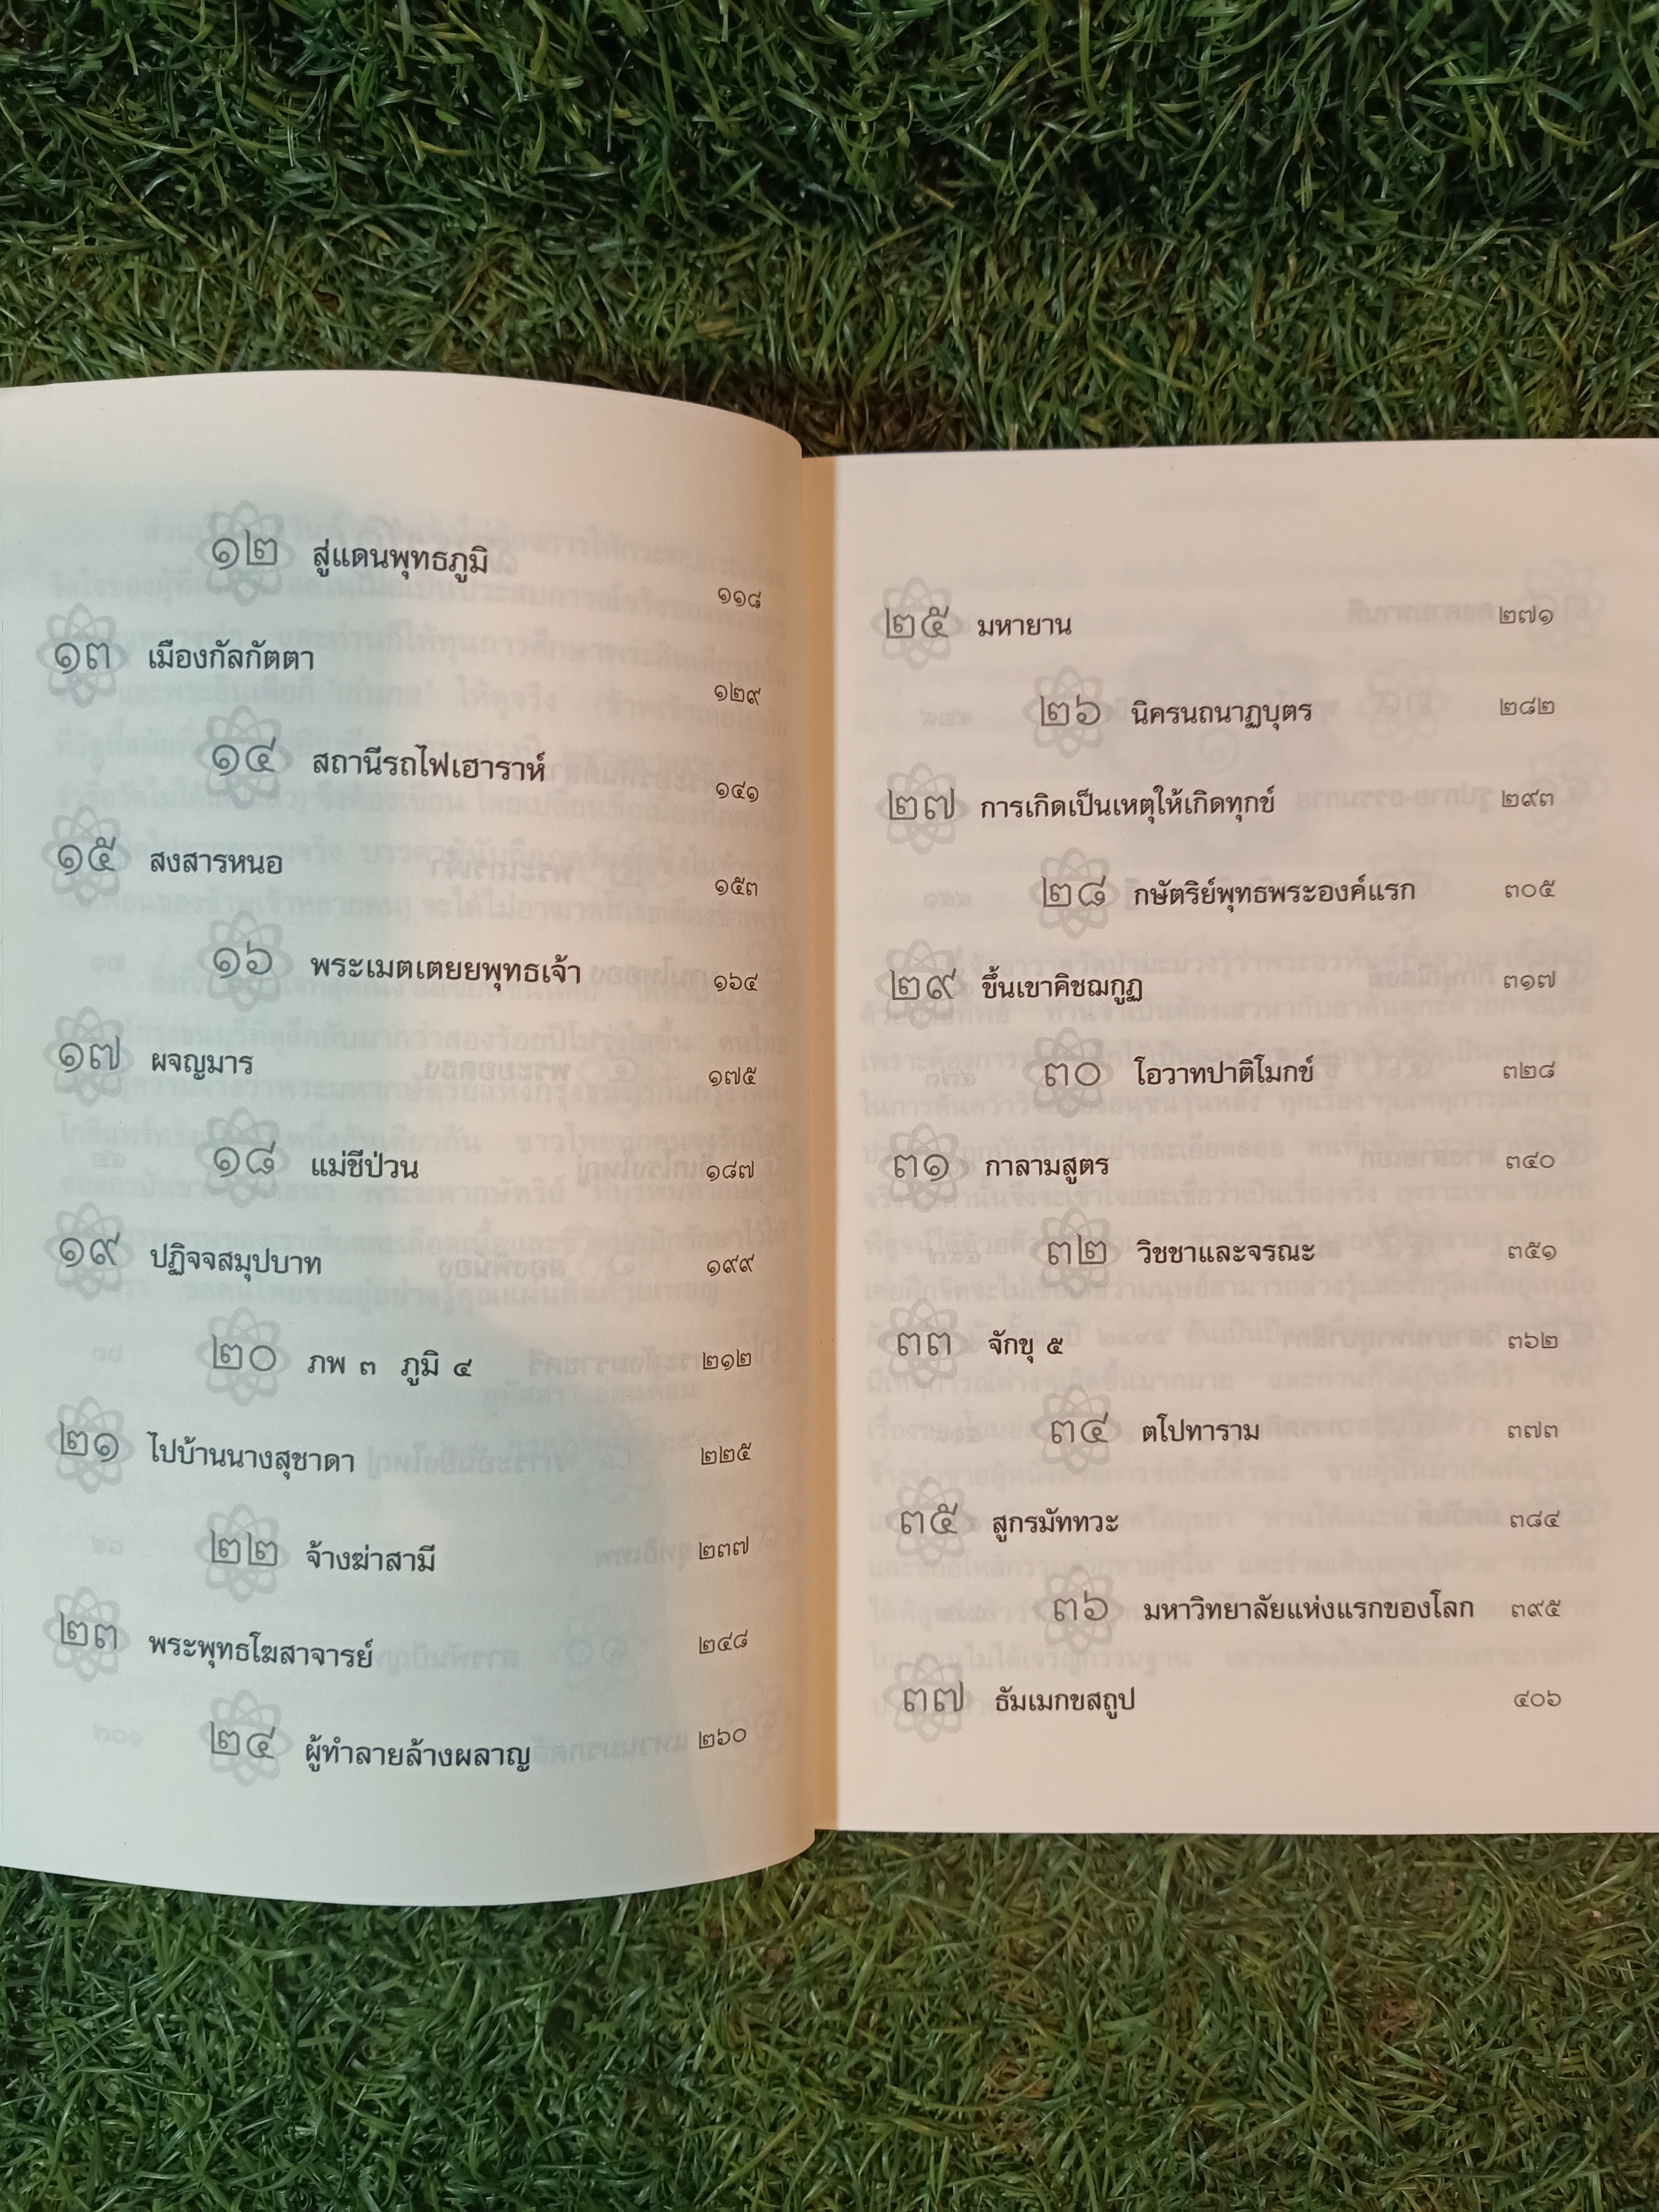 ๑๒ สู่แดนพุทธภูมิ ๑๑๘
๑๓ เมืองกัลกัตตา ๑๒๙
๑๔ สถานีรถไฟเฮาราห์ ๑๔๑
๑๕ สงสารหนอ ๑๕๓
๑๖ พระเมตเตยยพุทธเจ้า ๑๖๔
๑๗ ผจญมาร ๑๗๕
๑๘ แม่ชีป่วน ๑๘๗
๑๙ ปฏิจจสมุปบาท ๑๙๙
๒๐ ภพ ๓ ภูมิ ๔ ๒๑๒
๒๑ ไปบ้านนางสุชาดา ๒๒๕
๒๒ จ้างฆ่าสามี ๒๓๗
๒๓ พระพุทธโฆสาจารย์ ๒๔๘
๒๔ ผู้ทำลายล้างผลาญ ๒๖๐
๒๕ มหายาน ๒๗๑
๒๖ นิครนถนาฏบุตร ๒๘๒
๒๗ การเกิดเป็นเหตุให้เกิดทุกข์ ๒๙๓
๒๘ กษัตริย์พุทธพระองค์แรก ๓๐๕
๒๙ ขึ้นเขาคิชฌกูฏ ๓๑๗
๓๐ โอวาทปาติโมกข์ ๓๒๘
๓๑ กาลามสูตร ๓๔๐
๓๒ วิชชาและจรณะ ๓๕๑
๓๓ จักขุ ๕ ๓๖๒
๓๔ ตโปทาราม ๓๗๓
๓๕ สูกรมัททวะ ๓๘๔
๓๖ มหาวิทยาลัยแห่งแรกของโลก ๓๙๕
๓๗ ธัมเมกขสถูป ๔๐๖